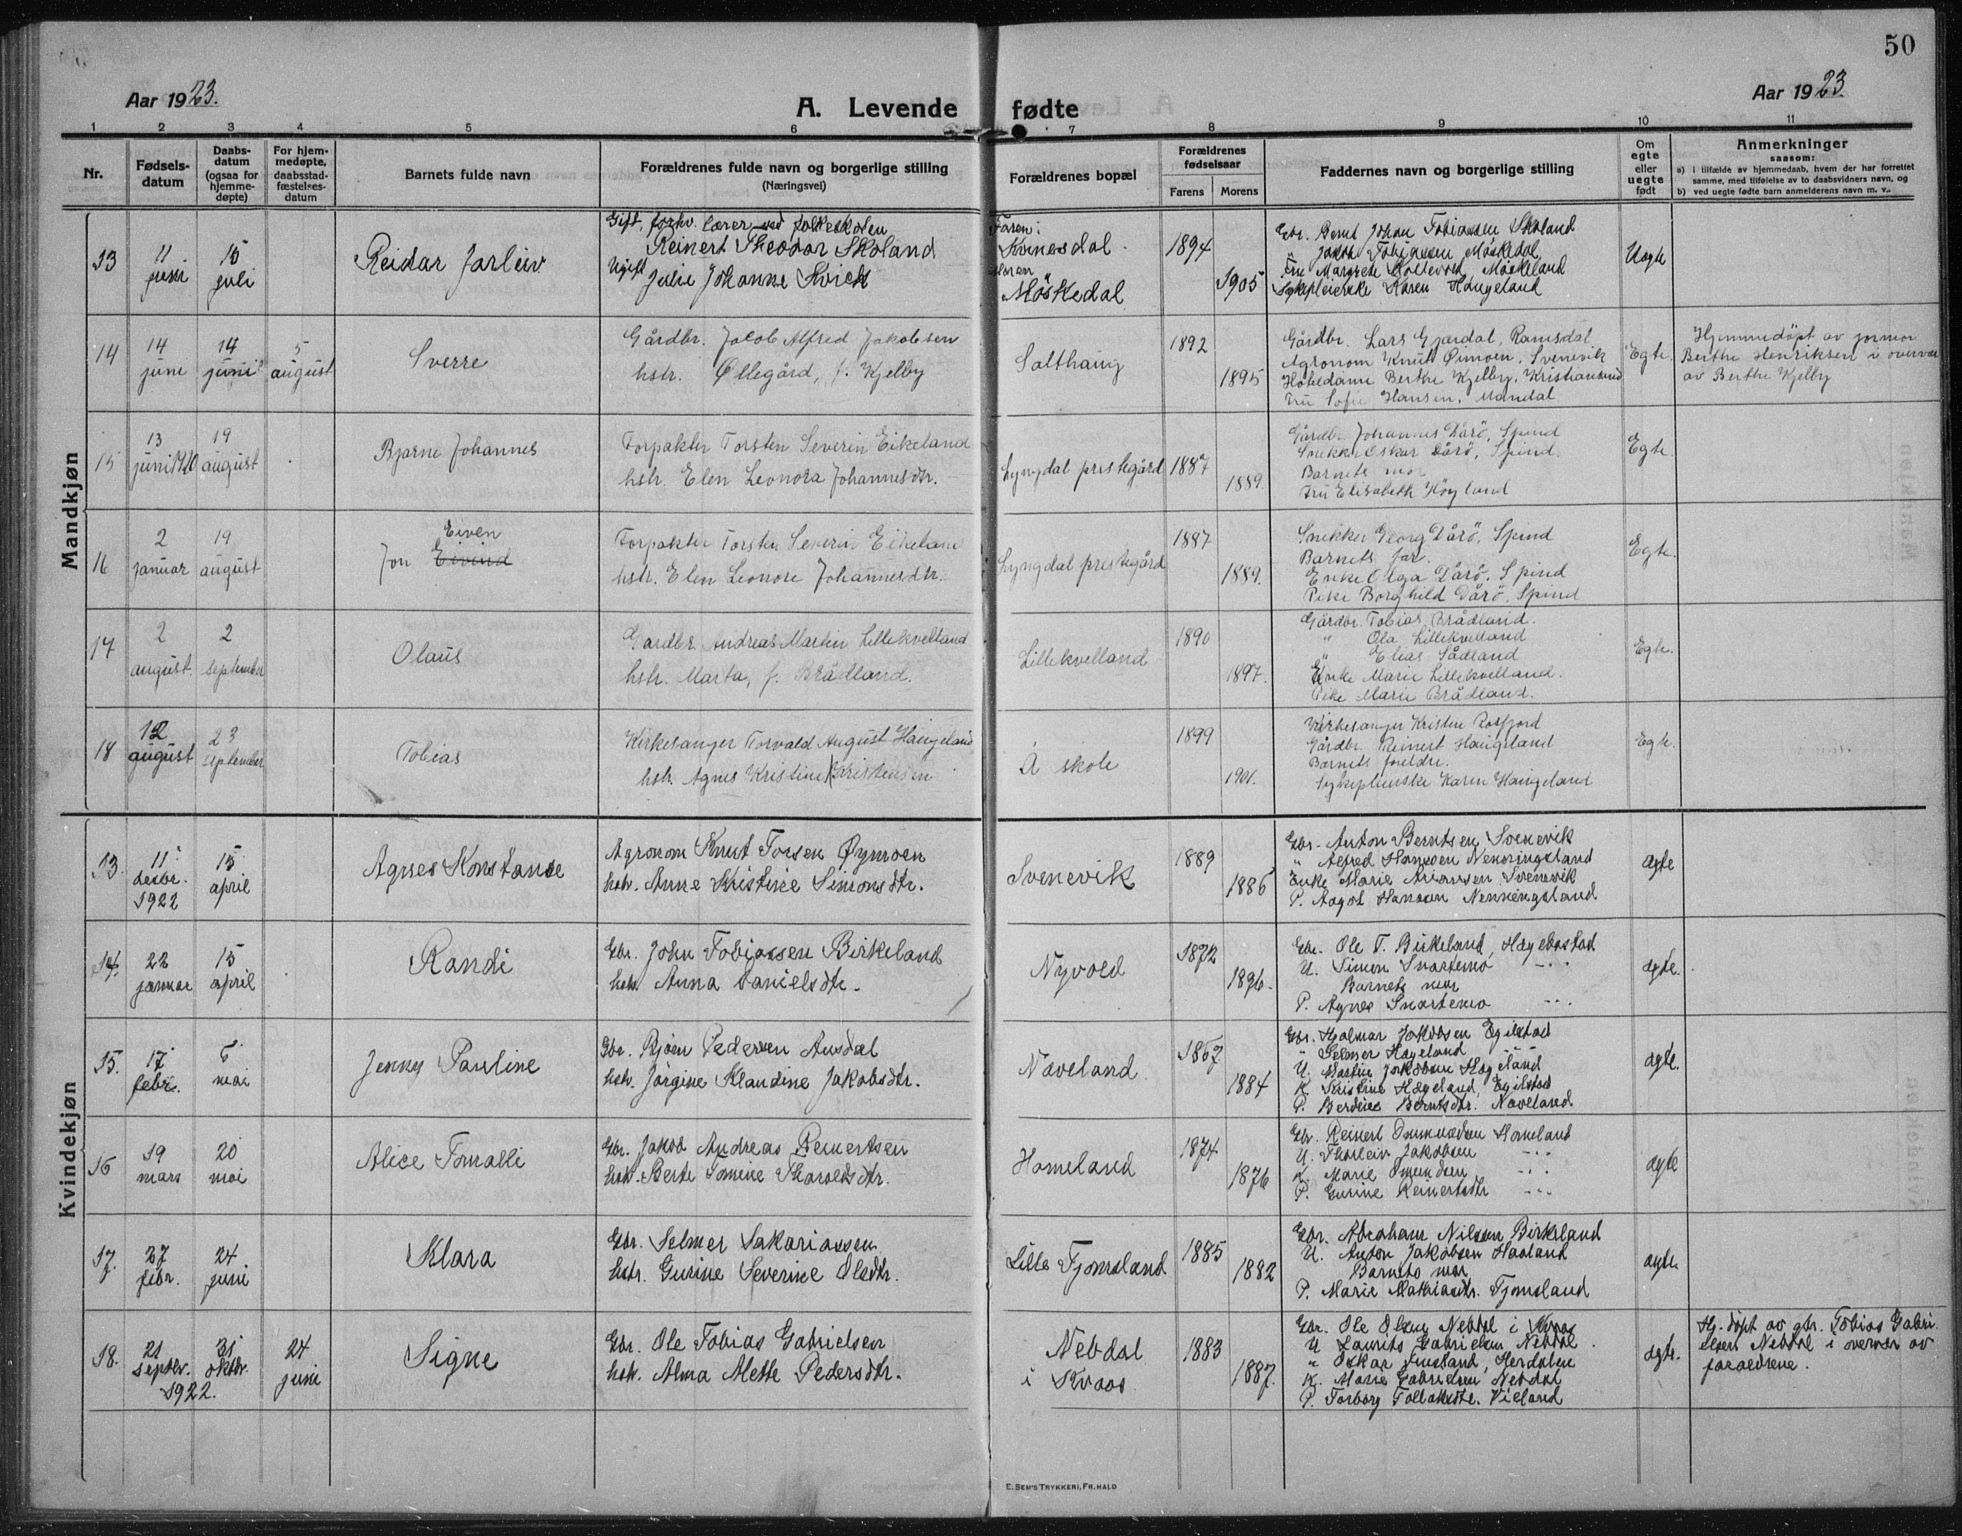 50
Aar 1923.
A. Levende fødte
Aar 1923
1 2 3 4 5 6 7 8 9 10 11
Nr.
Fødsels-
datum
Daabs-
datum
(ogsaa for
hjemme-
døpte)
For hjem-
medøpte,
daabsstad-
fæstelses-
datum
Barnets fulde navn
Forældrenes fulde navn og borgerlige stilling
(Næringsvei)
Forældrenes bopæl
Forældrenes
fødselsaar
Farens Morens
Faddernes navn og borgerlige stilling
Om
egte
eller
uegte
født
Anmerkninger
saasom:
a) i tilfælde av hjemmedaab, hvem der har forrettet
samme, med tilføielse av to daabsvidners navn, og
b) ved uegte fødte barn anmelderens navn m. v.
Mandkjøn
13
11
juni
15
juli
Reidar Jarleiv
Gift, forhv. lærer ved folkeskolen
Reinert Theodor Skoland
Ugift Julie Johanne
Faren:
Kvinesdal
Moren
Møskedal
1894
1905
Gbr. Bernt Johan Tobiassen Skoland
" Jakob Tobiassen Møskedal
Fru Margrete Møskeland
Sykepleierske Karen Haugeland
Uegte
14
14
juni
14
juni
5
august
Sverre
Gårdbr. Jacob Alfred Jakobsen
hstr. Ollegård, f. Kjelby
Salthaug
1892
1895
Gårdbr. Lars Gjerdal, Ramsdal
Agronom Knut Øimoen, Svenevik
Berthe Kjelby, Kristiansand
Fru Sofie Hansen, Mandal
Egte
Hjemmedøpt av jormor
Berthe Henriksen i overvær
av Berthe Kjelby
15
13
juni 1920
19
august
Bjarne Johannes
Forpakter Torsten Severin Eikeland
hstr. Elen Leonora Johannesdtr.
Lyngdal prestegård
1887
1889.
Gårdbr. Johannes Dårø, Spind
Snekker Oskar Dårø, Spind.
Barnets mor
Fru Elisabeth Høyland
Egte
16
2
januar
19
august
Eiven
Jon Eivind
Forpakter Torsten Severin Eikeland
hstr. Elen Leonore Johannesdtr.
Lyngdal prestegård
1887
1889.
Snekker Georg Dårø, Spind
Barnets far.
Enke Olga Dårø, Spind
Pike Borghild Dårø, Spind
Egte.
17
2
august
2
september
Olaus
Gardbr. Andreas Martin Lillekvelland
hstr. Marta, f. Brådland.
Lillekvelland
1890
1897.
Gårdbr. Tobias Brådland.
" Ola Lillekvelland
" Elias Sådland
Enke Marie Lillekvelland.
Pike Marie Brådland.
Egte.
18
12
august
23
september
Tobias
Kirkesanger Torvald August Haugeland
hstr. Agnes Kristine Kristensen
Å skole
1899
1901.
Kirkesanger Kristen Rosfjord
Gårdbr. Reinert Haugeland
Barnets foreldre.
Sykepleierske Karen Haugeland
Egte.
Kvindekjøn
13.
11
desbr.
1922
15
april
Agnes Konstanse
Agronom Knut Torsen Øymoen
hstr. Anne Kristine Simonsdtr.
Svenevik
1889
1886
Gbr. Anton Berntsen Svenevik
" Alfred Hansen Nenningsland
Enke Marie Svenevik
P. Aagot Hansen Nenningsland
ægte
14.
22
januar
15
april
Randi
Gbr. John Tobiassen Birkeland
hstr. Anna Danielsdtr.
Nyvold
1872
1896.
Gbr. Ole T. Birkeland, Hægebostad
U. Simon Snartemo -"-
Barnets mor
P. Agnes Snartemo -"-
ægte.
15.
17
febr.
6
mai
Jenny Pauline
Gbr. Bjoen Pedersen Ausdal
hstr. Jørgine Klandine Jakobsdtr.
Naveland
1867
1884
Gbr. Hjalmar Jakobsen Egilstad
" Selmer Hægeland
U. Martin Jakobsen Hægeland
K. Kristine Hægeland, Egilstad
P. Berntsdtr. Naveland
ægte.
16
19
mars
20
mai
Alice Tomalli
Gbr. Jakob Andreas Reinertsen
hstr. Berte Tomine Tharaldsdtr.
Homeland
1874
1876
Gbr. Reinert Homeland
U. Thorleiv Jakobsen -"-
K. Marie -"-
P. Gurine Reinertsdtr -"-
ægte
17.
27
febr.
24
juni
Klara
Gbr. Selmer Sakariassen
hstr. Gurine Severine Olsdtr.
Lille Tjomsland
1885
1882
Gbr. Abraham Nilsen Birkeland
U. Anton Jakobsen Haaland
Barnets mor
P. Marie Mathiasdtr. Tjomsland
ægte
18.
21
septbr.
31
oktbr.
1922.
24
juni
Signe
Gbr. Ole Tobias Gabrielsen
hstr. Alma Alette Pedersdtr.
Nebdal
i Kvaas
1883
1887.
Gbr. Ole Olsen Nebdal i Kvaas
U Laurits Gabrielsen Nebdal
" Oskar Herdalen
K. Marie Gabrielsen Nebdal
P. Torborg Tollaksdtr. Vieland
ægte.
Hj. døpt av gbr. Tobias Gabri-
elsen Nebdal i overvær av
foraeldrene.
E. SEM'S TRYKKERI, FR.HALD